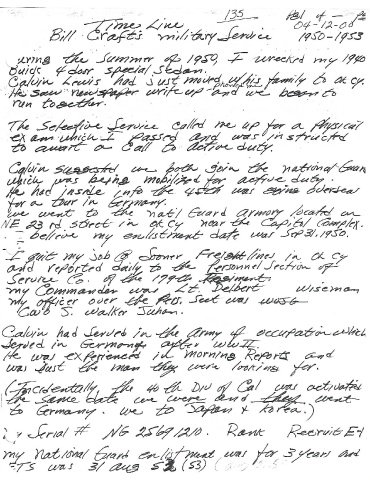 135
Time Line
04-12-00
Bill Crafts military Service 1950-1953
uring the Summer of 1950, I wrecked my 1940
Buick 4 door special Sedan.
Calvin Lewis had just moved w/his family to okcy.
He saw newspaper write up and we began to
run together.
The Selective Service called me up for a physical
exam which I passed and was instructed
to await a call to active duty.
Calvin suggested we both join the national Guard
which was being mobilized for active duty.
He had inside info the 45th was going overseas
for a tour in Germany.
we went to the natl Guard armory located on
NE 23rd street in okcy near the Capitol complex.
believe my enlistment date was Sep 31, 1950.
I quit my job @ Sooner Freight lines in okcy
and reported daily to the Personnel Section of
Service Co. of the 179th Regiment.
my Commander was Lt. Delbert Wiseman
my officer over the Pers. Sect was WOJG
S. Walker
Calvin had served in the Army of occupation which
served in Germany after WWII.
He was experienced in morning Reports and
was just the man they were looking for.
(Incidentally, the 40th Div of Cal was activated
the same date we were and they went
to Germany. we to Japan & Korea.)
Serial # NG 25691210. Rank Recruit E-1
my National Guard enlistment was for 3 years and
TS was 31 aug 52 (53)